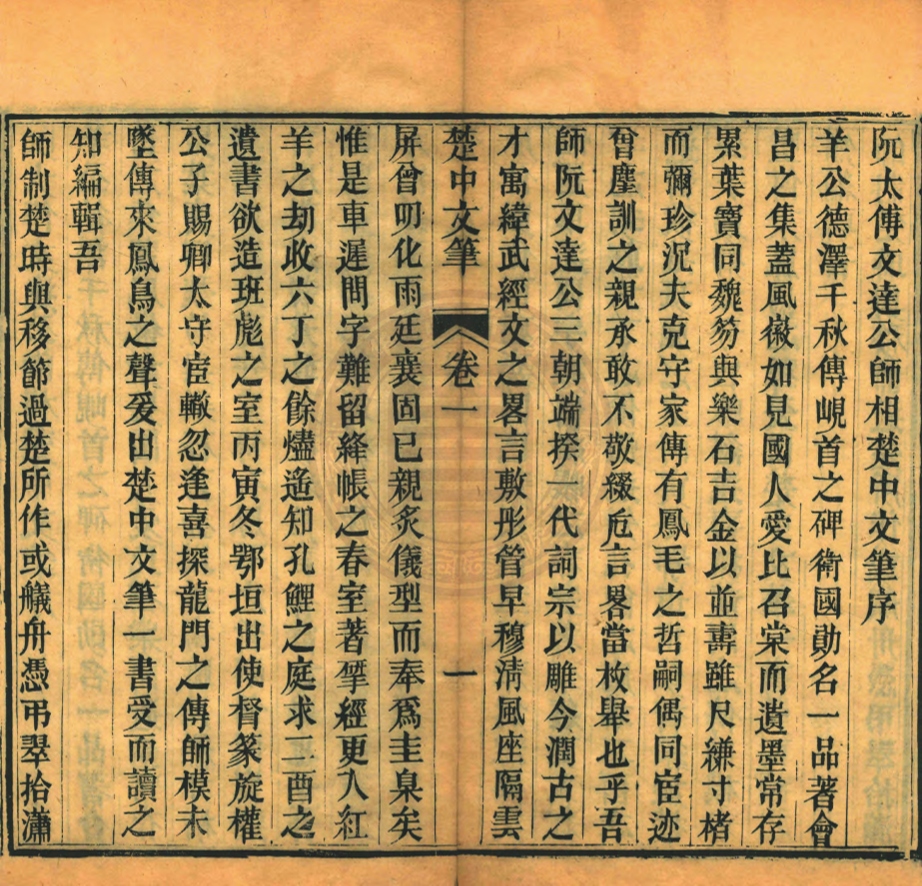 阮太傅文達公師相楚中文筆序
羊公德澤千秋傳峴首之碑衛國勛名一品著會
昌之集蓋風徽如見國人愛比召棠而遺墨常存
累葉寶同魏笏與樂石吉金以並壽雖尺縑寸楮
而彌珍況夫克守家傳有鳳毛之哲嗣偶同宦迹
曾塵訓之親承敢不敬綴卮言畧當枚舉也乎吾
師阮文達公三朝端揆一代詞宗以雕今潤古之
才寓緯武經文之畧言敷彤管早穆淸風座隔雲
楚中文筆 卷一 一
屏曾叨化雨廷襄固已親炙儀型而奉爲圭臬矣
惟是車遲問字難留絳帳之春室著揅經更入紅
羊之劫收六丁之餘燼遙知孔鯉之庭求二酉之
遺書欲造班彪之室丙寅冬鄂垣出使督篆旋權
公子賜卿太守宦轍忽逢喜探龍門之傳師模未
墜傳來鳳鳥之聲爰出楚中文筆一書受而讀之
知編輯吾
師制楚時與移節過楚所作或艤舟憑弔翠拾瀟